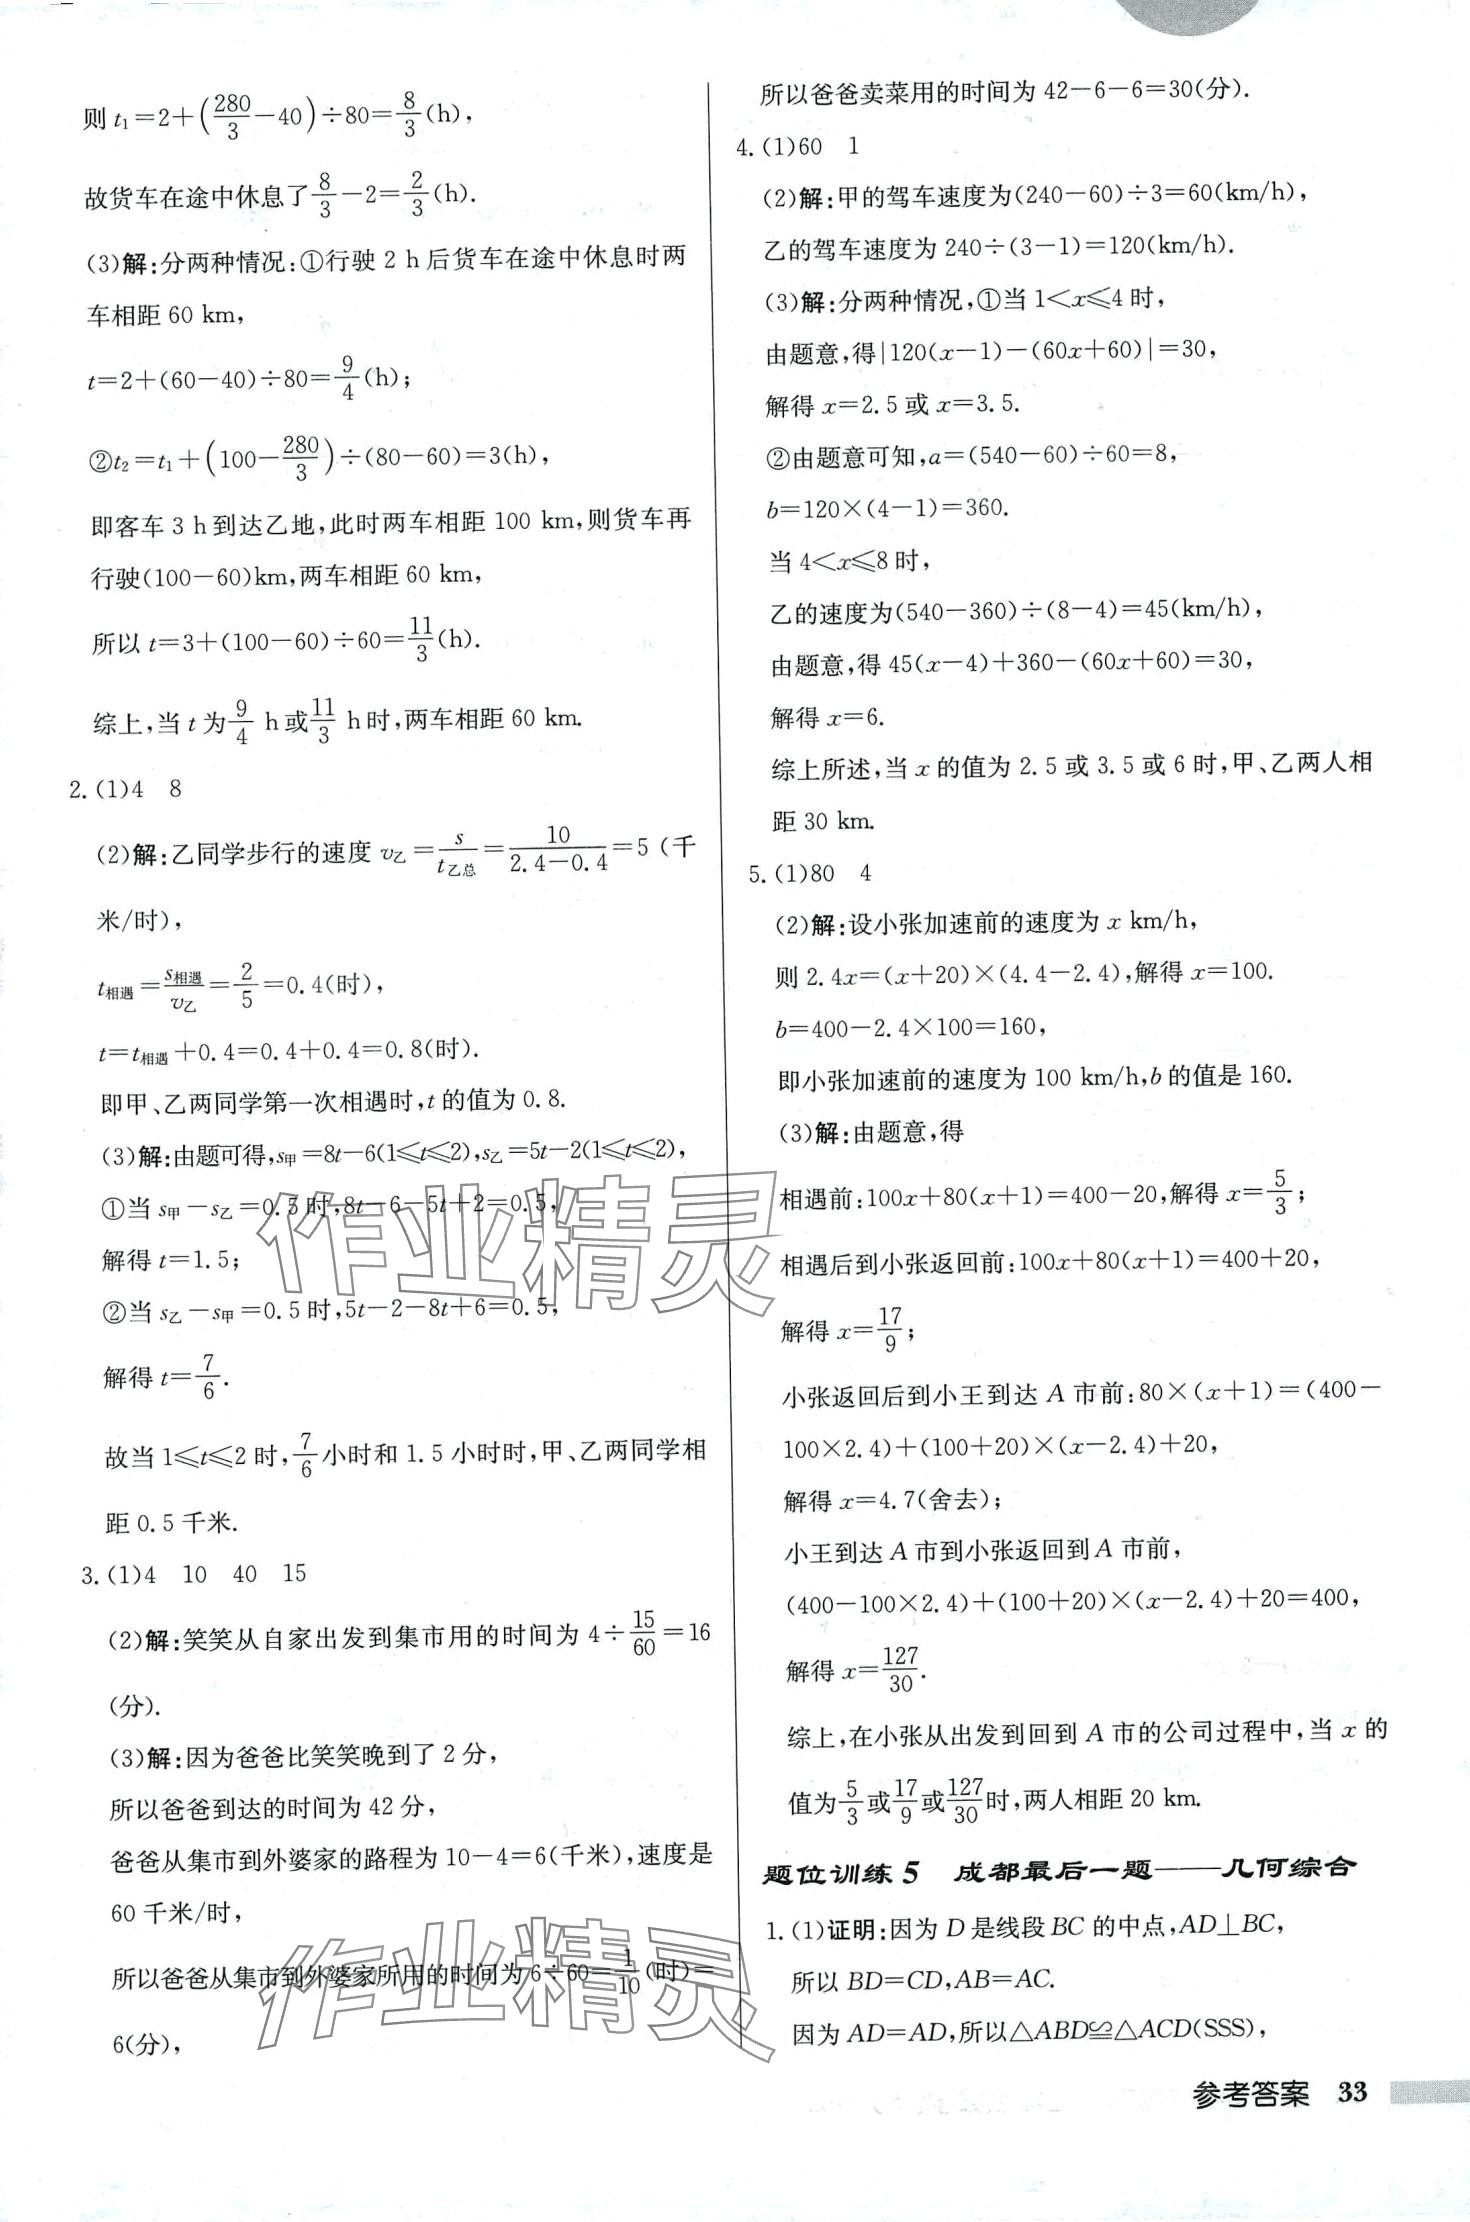 则 t₁=2+(280/3-40)÷80=8/3(h),
故货车在途中休息了 8/3-2=2/3(h).
(3)解:分两种情况:①行驶 2 h 后货车在途中休息时两
车相距 60 km,
t=2+(60-40)÷80=9/4(h);
②t₂=t₁+(100-280/3)÷(80-60)=3(h),
即客车 3 h 到达乙地,此时两车相距 100 km,则货车再
行驶(100-60)km,两车相距 60 km,
所以 t=3+(100-60)÷60=11/3(h).
综上,当 t 为 9/4 h 或 11/3 h 时,两车相距 60 km.
2.(1)4 8
(2)解:乙同学步行的速度 v乙=s/t乙总=10/(2.4-0.4)=5(千
米/时),
t相遇=s相遇/v乙=2/5=0.4(时),
t=t相遇+0.4=0.4+0.4=0.8(时).
即甲、乙两同学第一次相遇时,t 的值为 0.8.
(3)解:由题可得,s甲=8t-6(1⩽t⩽2),s乙=5t-2(1⩽t⩽2),
①当 s甲-s乙=0.5 时,8t-6-5t+2=0.5,
解得 t=1.5;
②当 s乙-s甲=0.5 时,5t-2-8t+6=0.5,
解得 t=7/6.
故当 1⩽t⩽2 时,7/6小时和 1.5 小时时,甲、乙两同学相
距 0.5 千米.
3.(1)4 10 40 15
(2)解:笑笑从自家出发到集市用的时间为 4÷15/60=16
(分).
(3)解:因为爸爸比笑笑晚到了 2 分,
所以爸爸到达的时间为 42 分,
爸爸从集市到外婆家的路程为 10-4=6(千米),速度是
60 千米/时,
所以爸爸从集市到外婆家所用的时间为 6÷60=1/10(时)=
6(分),
所以爸爸卖菜用的时间为 42-6-6=30(分).
4.(1)60 1
(2)解:甲的驾车速度为(240-60)÷3=60(km/h),
乙的驾车速度为 240÷(3-1)=120(km/h).
(3)解:分两种情况,①当 1<x⩽4 时,
由题意,得|120(x-1)-(60x+60)|=30,
解得 x=2.5 或 x=3.5.
②由题意可知,a=(540-60)÷60=8,
b=120×(4-1)=360.
当 4<x⩽8 时,
乙的速度为(540-360)÷(8-4)=45(km/h),
由题意,得 45(x-4)+360-(60x+60)=30,
解得 x=6.
综上所述,当 x 的值为 2.5 或 3.5 或 6 时,甲、乙两人相
距 30 km.
5.(1)80 4
(2)解:设小张加速前的速度为 x km/h,
则 2.4x=(x+20)×(4.4-2.4),解得 x=100.
b=400-2.4×100=160,
即小张加速前的速度为 100 km/h,b 的值是 160.
(3)解:由题意,得
相遇前:100x+80(x+1)=400-20,解得 x=5/3;
相遇后到小张返回前:100x+80(x+1)=400+20,
解得 x=17/9;
小张返回后到小王到达 A 市前:80×(x+1)=(400-
100×2.4)+(100+20)×(x-2.4)+20,
解得 x=4.7(舍去);
小王到达 A 市到小张返回到 A 市前,
(400-100×2.4)+(100+20)×(x-2.4)+20=400,
解得 x=127/30.
综上,在小张从出发到回到 A 市的公司过程中,当 x 的
值为 5/3 或 17/9 或 127/30 时,两人相距 20 km.
题位训练 5 成都最后一题——几何综合
1.(1)证明:因为 D 是线段 BC 的中点,AD⊥BC,
所以 BD=CD,AB=AC.
因为 AD=AD,所以△ABD≌△ACD(SSS),
参考答案 33
作业精灵
作业精灵